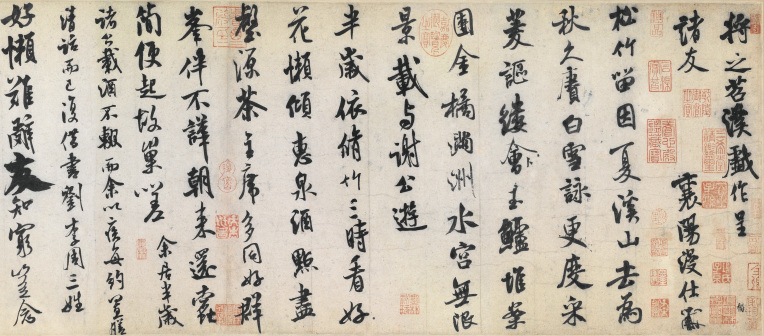 將之苕溪戲作呈
諸友
襄陽漫仕黻
松竹留因夏溪山去為
秋久賡白雪詠更度采
菱謳縷會玉鱸堆案
團金橘滿洲水宮無限
景載與謝公遊
半歲依脩竹三時看好
花懶傾惠泉酒點盡
壑源茶主席多同好群
峯伴不譁朝來還蠹
簡便起故巢嗟
余居半歲
諸公載酒不輟而余以疾每約置膳
清話而已復借書劉李周三姓
好懶難辭友知窮豈念